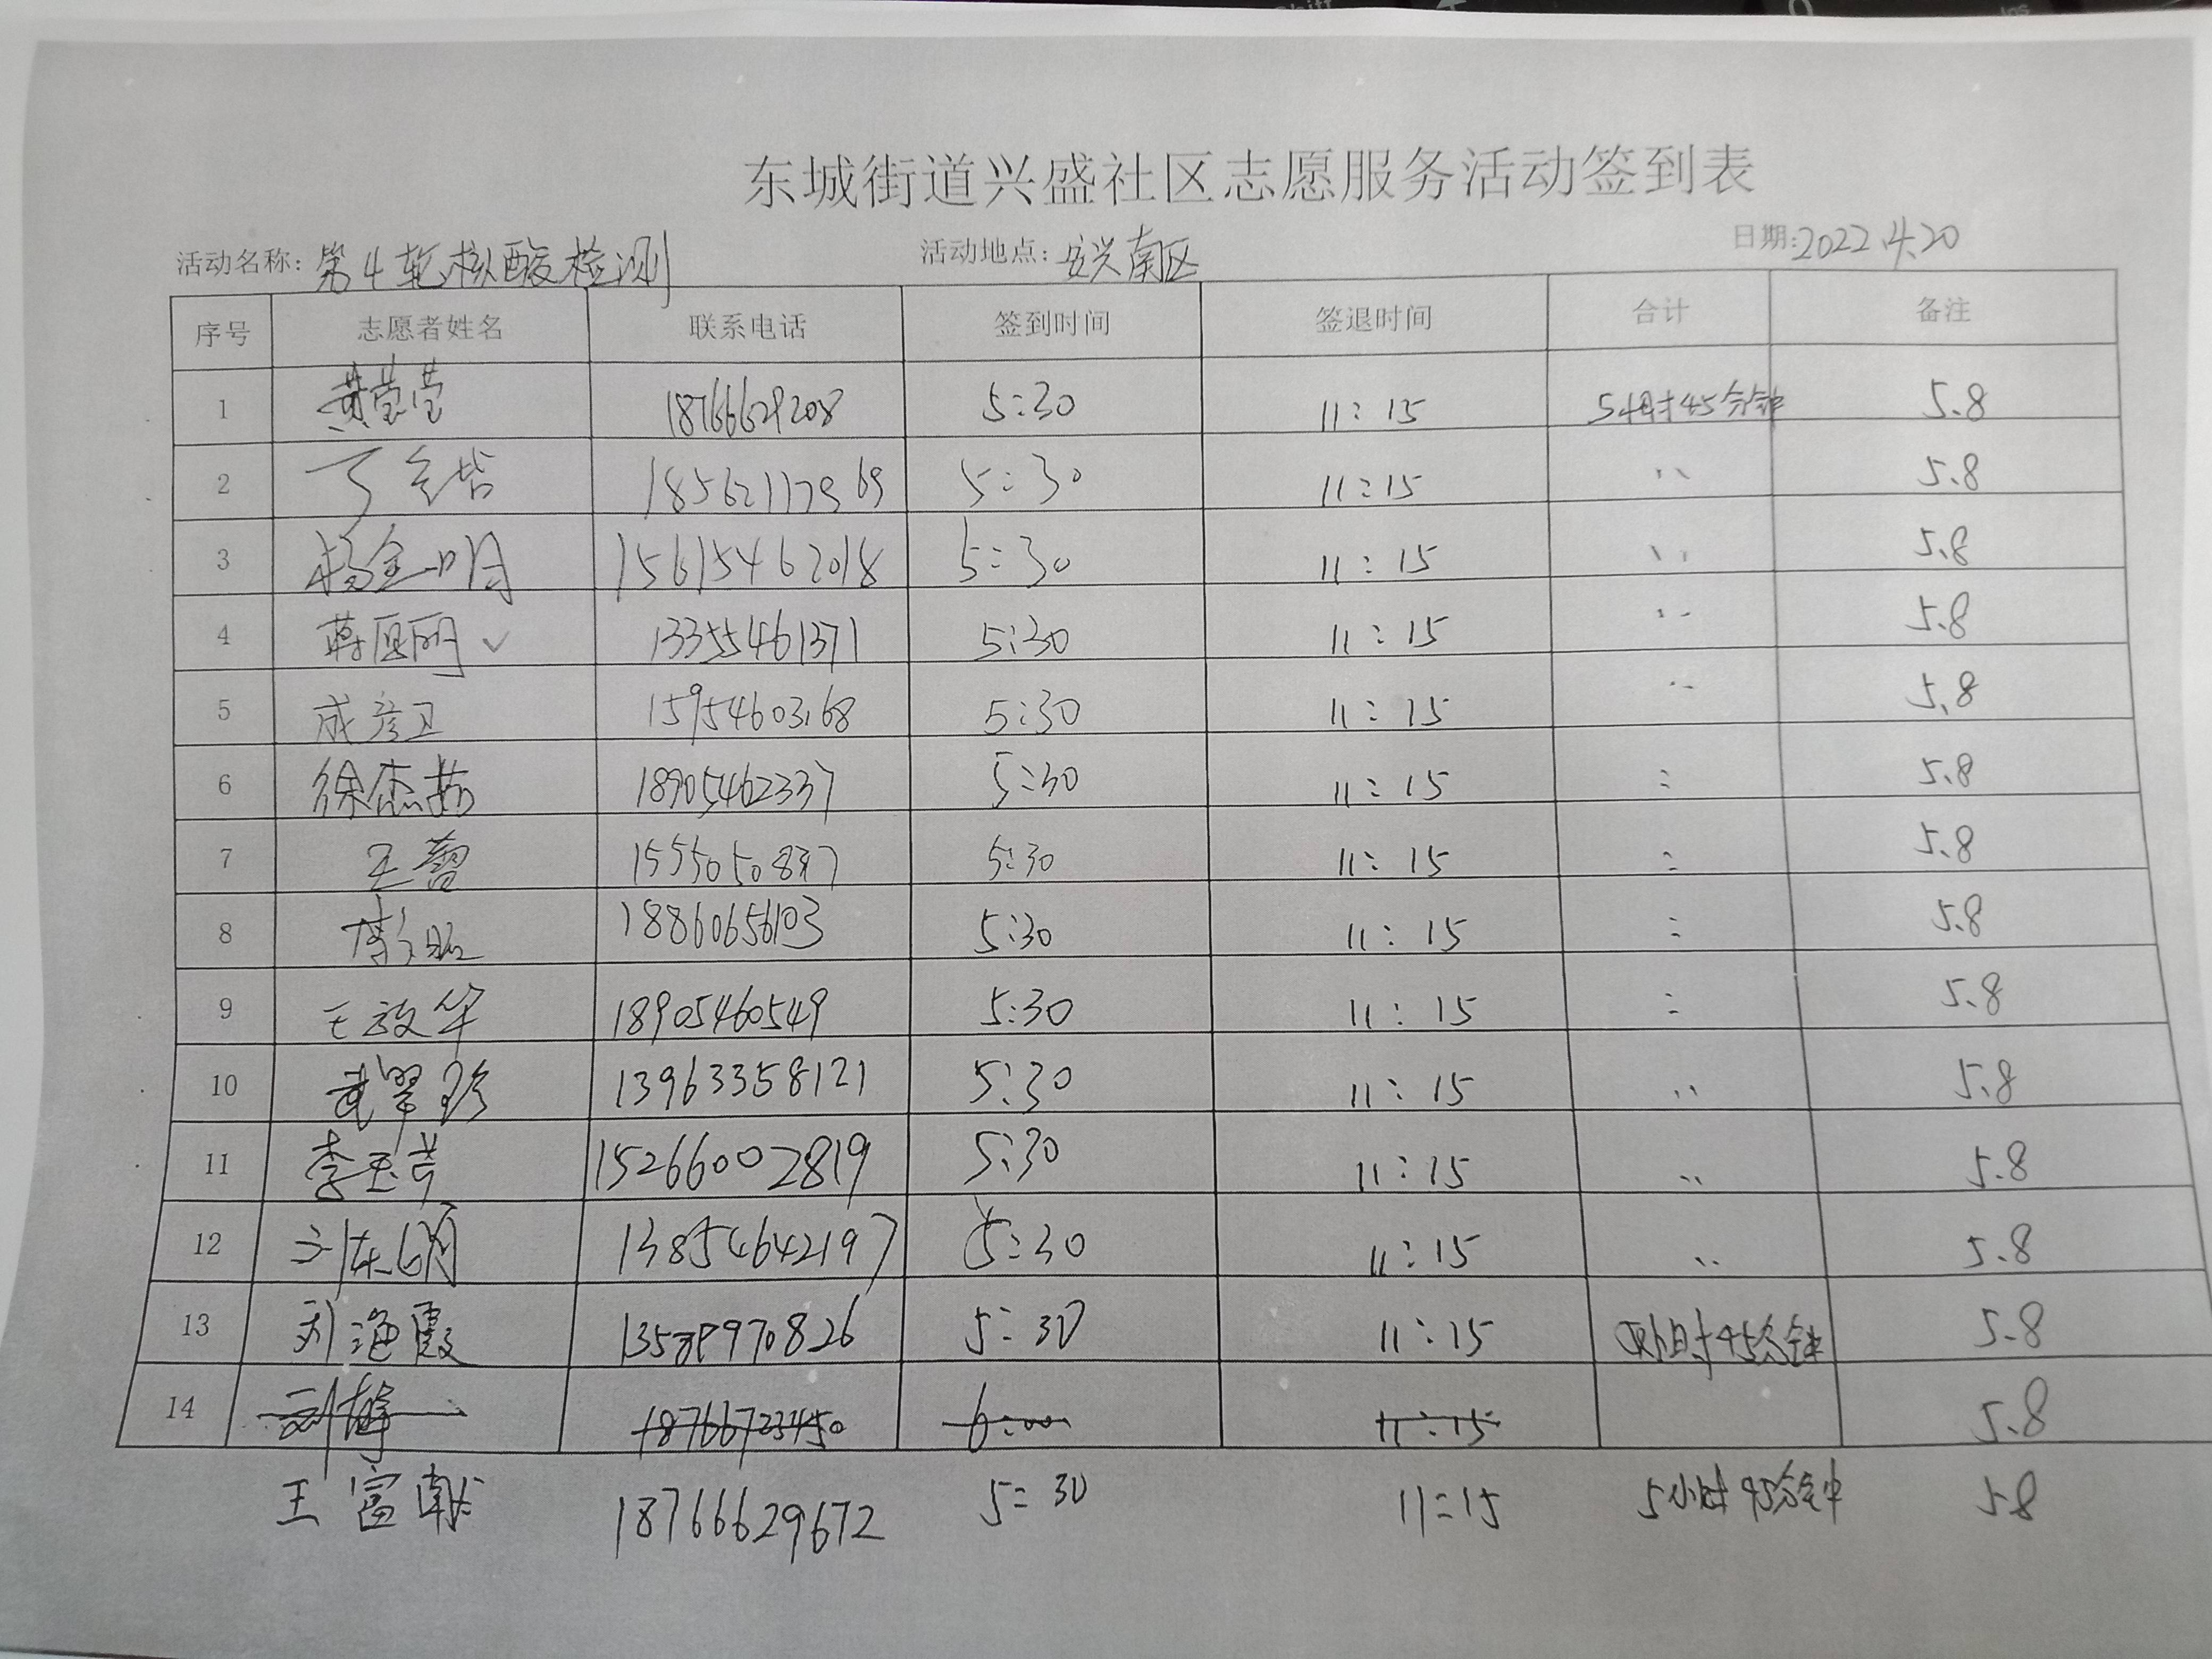 东城街道兴盛社区志愿服务活动签到表
活动名称: 第4轮核酸检测 活动地点: 安兴南区 日期: 2022.4.20
序号 志愿者姓名 联系电话 签到时间 签退时间 合计 备注
1 黄莹莹 18766629208 5:30 11:15 5小时45分钟 5.8
2 丁 5:30 11:15 〃 5.8
3 杨金明 15615462018 5:30 11:15 〃 5.8
4 蒋 ✓ 13355461371 5:30 11:15 〃 5.8
5 成彦卫 15954603168 5:30 11:15 〃 5.8
6 徐杰茹 18905462337 5:30 11:15 〃 5.8
7 王蕾 5:30 11:15 〃 5.8
8 18860656103 5:30 11:15 〃 5.8
9 王政华 18905460549 5:30 11:15 〃 5.8
10 武翠珍 13963358121 5:30 11:15 〃 5.8
11 李玉芳 15266002819 5:30 11:15 〃 5.8
12 13854642197 5:30 11:15 〃 5.8
13 刘海霞 5:30 11:15 5小时45分钟 5.8
14 18766723450 6:00 11:15 5.8
王富献 18766629672 5:30 11:15 5小时45分钟 5.8